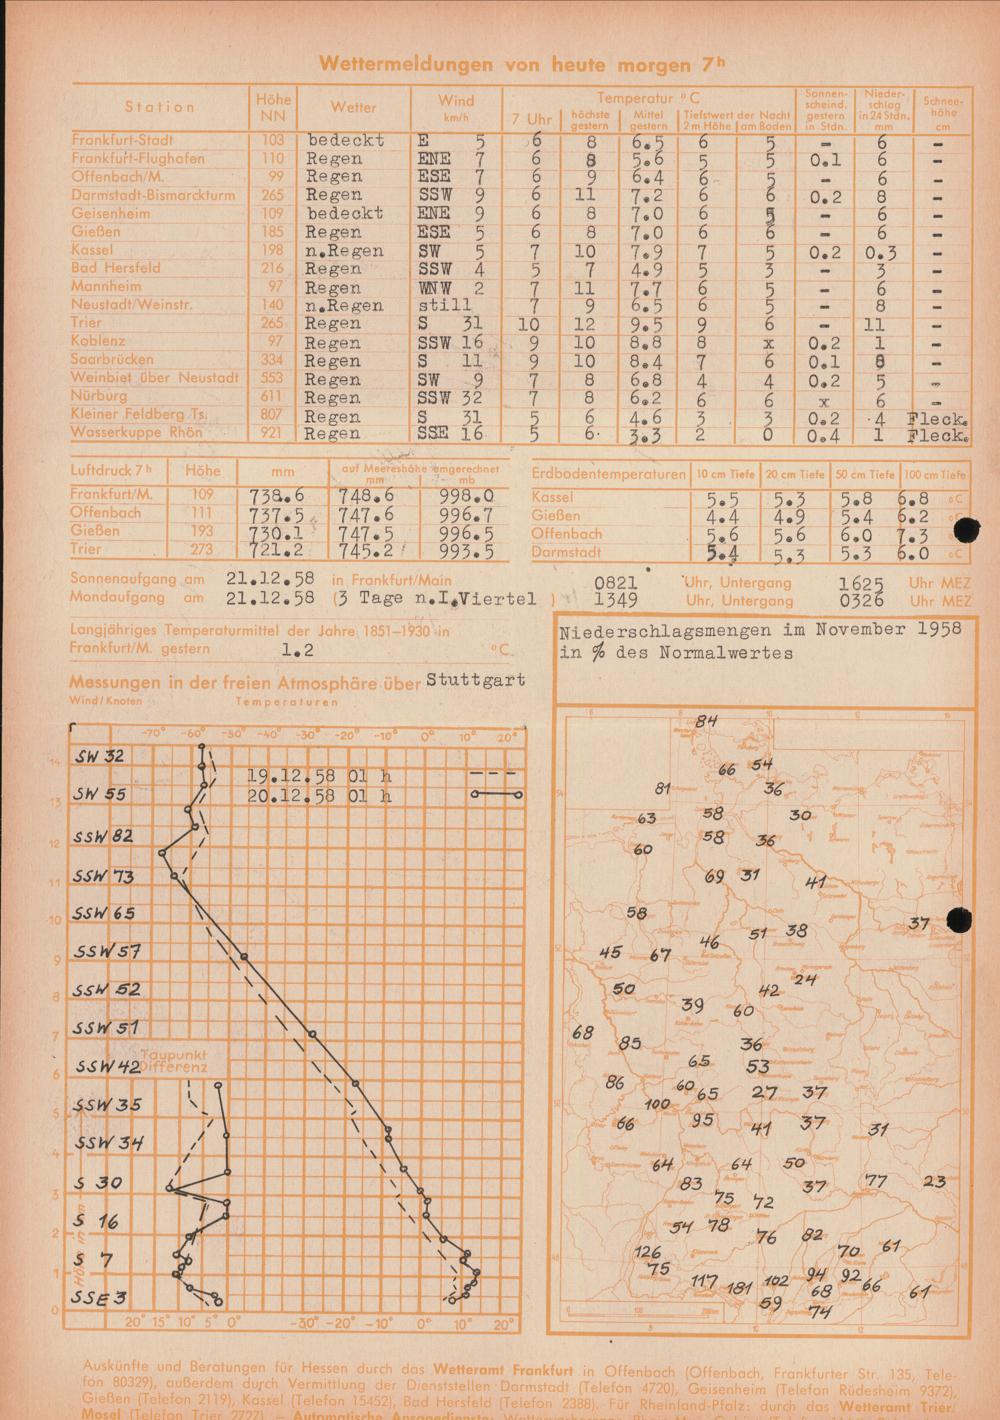 Wettermeldungen von heute morgen 7h
Station Höhe NN Wetter Wind km/h Temperatur °C 7 Uhr höchste gestern Mittel gestern Tiefstwert der Nacht 2 m Höhe am Boden Sonnen-scheind. gestern in Stdn. Nieder-schlag in 24 Stdn. mm Schnee-höhe cm
Frankfurt-Stadt 103 bedeckt E 5 6 8 6.5 6 5 - 6 -
Frankfurt-Flughafen 110 Regen ENE 7 6 8 5.6 5 5 0.1 6 -
Offenbach/M. 99 Regen ESE 7 6 9 6.4 6 5 - 6 -
Darmstadt-Bismarckturm 265 Regen SSW 9 6 11 7.2 6 6 0.2 8 -
Geisenheim 109 bedeckt ENE 9 6 8 7.0 6 5 - 6 -
Gießen 185 Regen ESE 5 6 8 7.0 6 6 - 6 -
Kassel 198 n.Regen SW 5 7 10 7.9 7 5 0.2 0.3 -
Bad Hersfeld 216 Regen SSW 4 5 7 4.9 5 3 - 3 -
Mannheim 97 Regen WNW 2 7 11 7.7 6 5 - 6 -
Neustadt/Weinstr. 140 n.Regen still 7 9 6.5 6 5 - 8 -
Trier 265 Regen S 31 10 12 9.5 9 6 - 11 -
Koblenz 97 Regen SSW 16 9 10 8.8 8 x 0.2 1 -
Saarbrücken 334 Regen S 11 9 10 8.4 7 6 0.1 8 -
Weinbiet über Neustadt 553 Regen SW 9 7 8 6.8 4 4 0.2 5 -
Nürburg 611 Regen SSW 32 7 8 6.2 6 6 x 6 -
Kleiner Feldberg Ts. 807 Regen S 31 5 6 4.6 3 3 0.2 4 Fleck.
Wasserkuppe Rhön 921 Regen SSE 16 5 6 3.3 2 0 0.4 1 Fleck.
Luftdruck 7h Höhe mm auf Meereshöhe umgerechnet mm mb
Frankfurt/M. 109 738.6 748.6 998.0
Offenbach 111 737.5 747.6 996.7
Gießen 193 730.1 747.5 996.5
Trier 273 721.2 745.2 993.5
Erdbodentemperaturen 10 cm Tiefe 20 cm Tiefe 50 cm Tiefe 100 cm Tiefe
Kassel 5.5 5.3 5.8 6.8 °C
Gießen 4.4 4.9 5.4 6.2 °C
Offenbach 5.6 5.6 6.0 7.3 °C
Darmstadt 5.4 5.3 5.3 6.0 °C
Sonnenaufgang am 21.12.58 in Frankfurt/Main 0821 Uhr, Untergang 1625 Uhr MEZ
Mondaufgang am 21.12.58 (3 Tage n.I.Viertel ) 1349 Uhr, Untergang 0326 Uhr MEZ
Langjähriges Temperaturmittel der Jahre 1851–1930 in
Frankfurt/M. gestern 1.2 °C
Messungen in der freien Atmosphäre über Stuttgart
Wind/Knoten Temperaturen
-70° -60° -50° -40° -30° -20° -10° 0° 10° 20°
14
SW 32
19.12.58 01 h
SW 55 20.12.58 01 h
13
SSW 82
12
SSW 73
11
SSW 65
10
SSW 57
9
SSW 52
8
SSW 51
7
SSW 42 Taupunkt
Differenz
6
SSW 35
5
SSW 34
4
S 30
3
S 16
2
S 7
1
SSE 3
0
Höhe in km
20° 15° 10° 5° 0° -30° -20° -10° 0° 10° 20°
Niederschlagsmengen im November 1958
in % des Normalwertes
84
66 54
81 36
63 58 30
60 58 36
69 31 41
58 37
46 51 38
45 67
50 42 24
39 60
68 85 36
65 53
86 60 65 27 37
100
66 95 41 37 31
64 64 50
83 37 77 23
75 72
54 78 76 82
126 70 61
75 117 181 102 94 92 66 61
68
59 74
Auskünfte und Beratungen für Hessen durch das Wetteramt Frankfurt in Offenbach (Offenbach, Frankfurter Str. 135, Tele-
fon 80329), außerdem durch Vermittlung der Dienststellen Darmstadt (Telefon 4720), Geisenheim (Telefon Rüdesheim 9372),
Gießen (Telefon 2119), Kassel (Telefon 15452), Bad Hersfeld (Telefon 2388). Für Rheinland-Pfalz: durch das Wetteramt Trier/
Mosel (Telefon Trier 2727). — Automatische Ansagedienste: